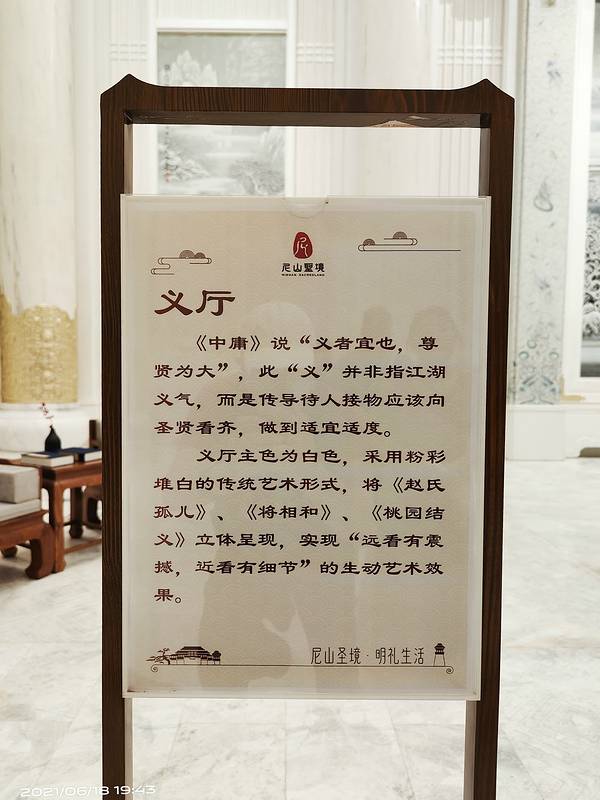 尼山聖境
NISHAN SACREDLAND
义厅
《中庸》说“义者宜也，尊
贤为大”，此“义”并非指江湖
义气，而是传导待人接物应该向
圣贤看齐，做到适宜适度。
义厅主色为白色，采用粉彩
堆白的传统艺术形式，将《赵氏
孤儿》、《将相和》、《桃园结
义》立体呈现，实现“远看有震
撼，近看有细节”的生动艺术效
果。
尼山圣境·明礼生活
2021/06/18 19:43